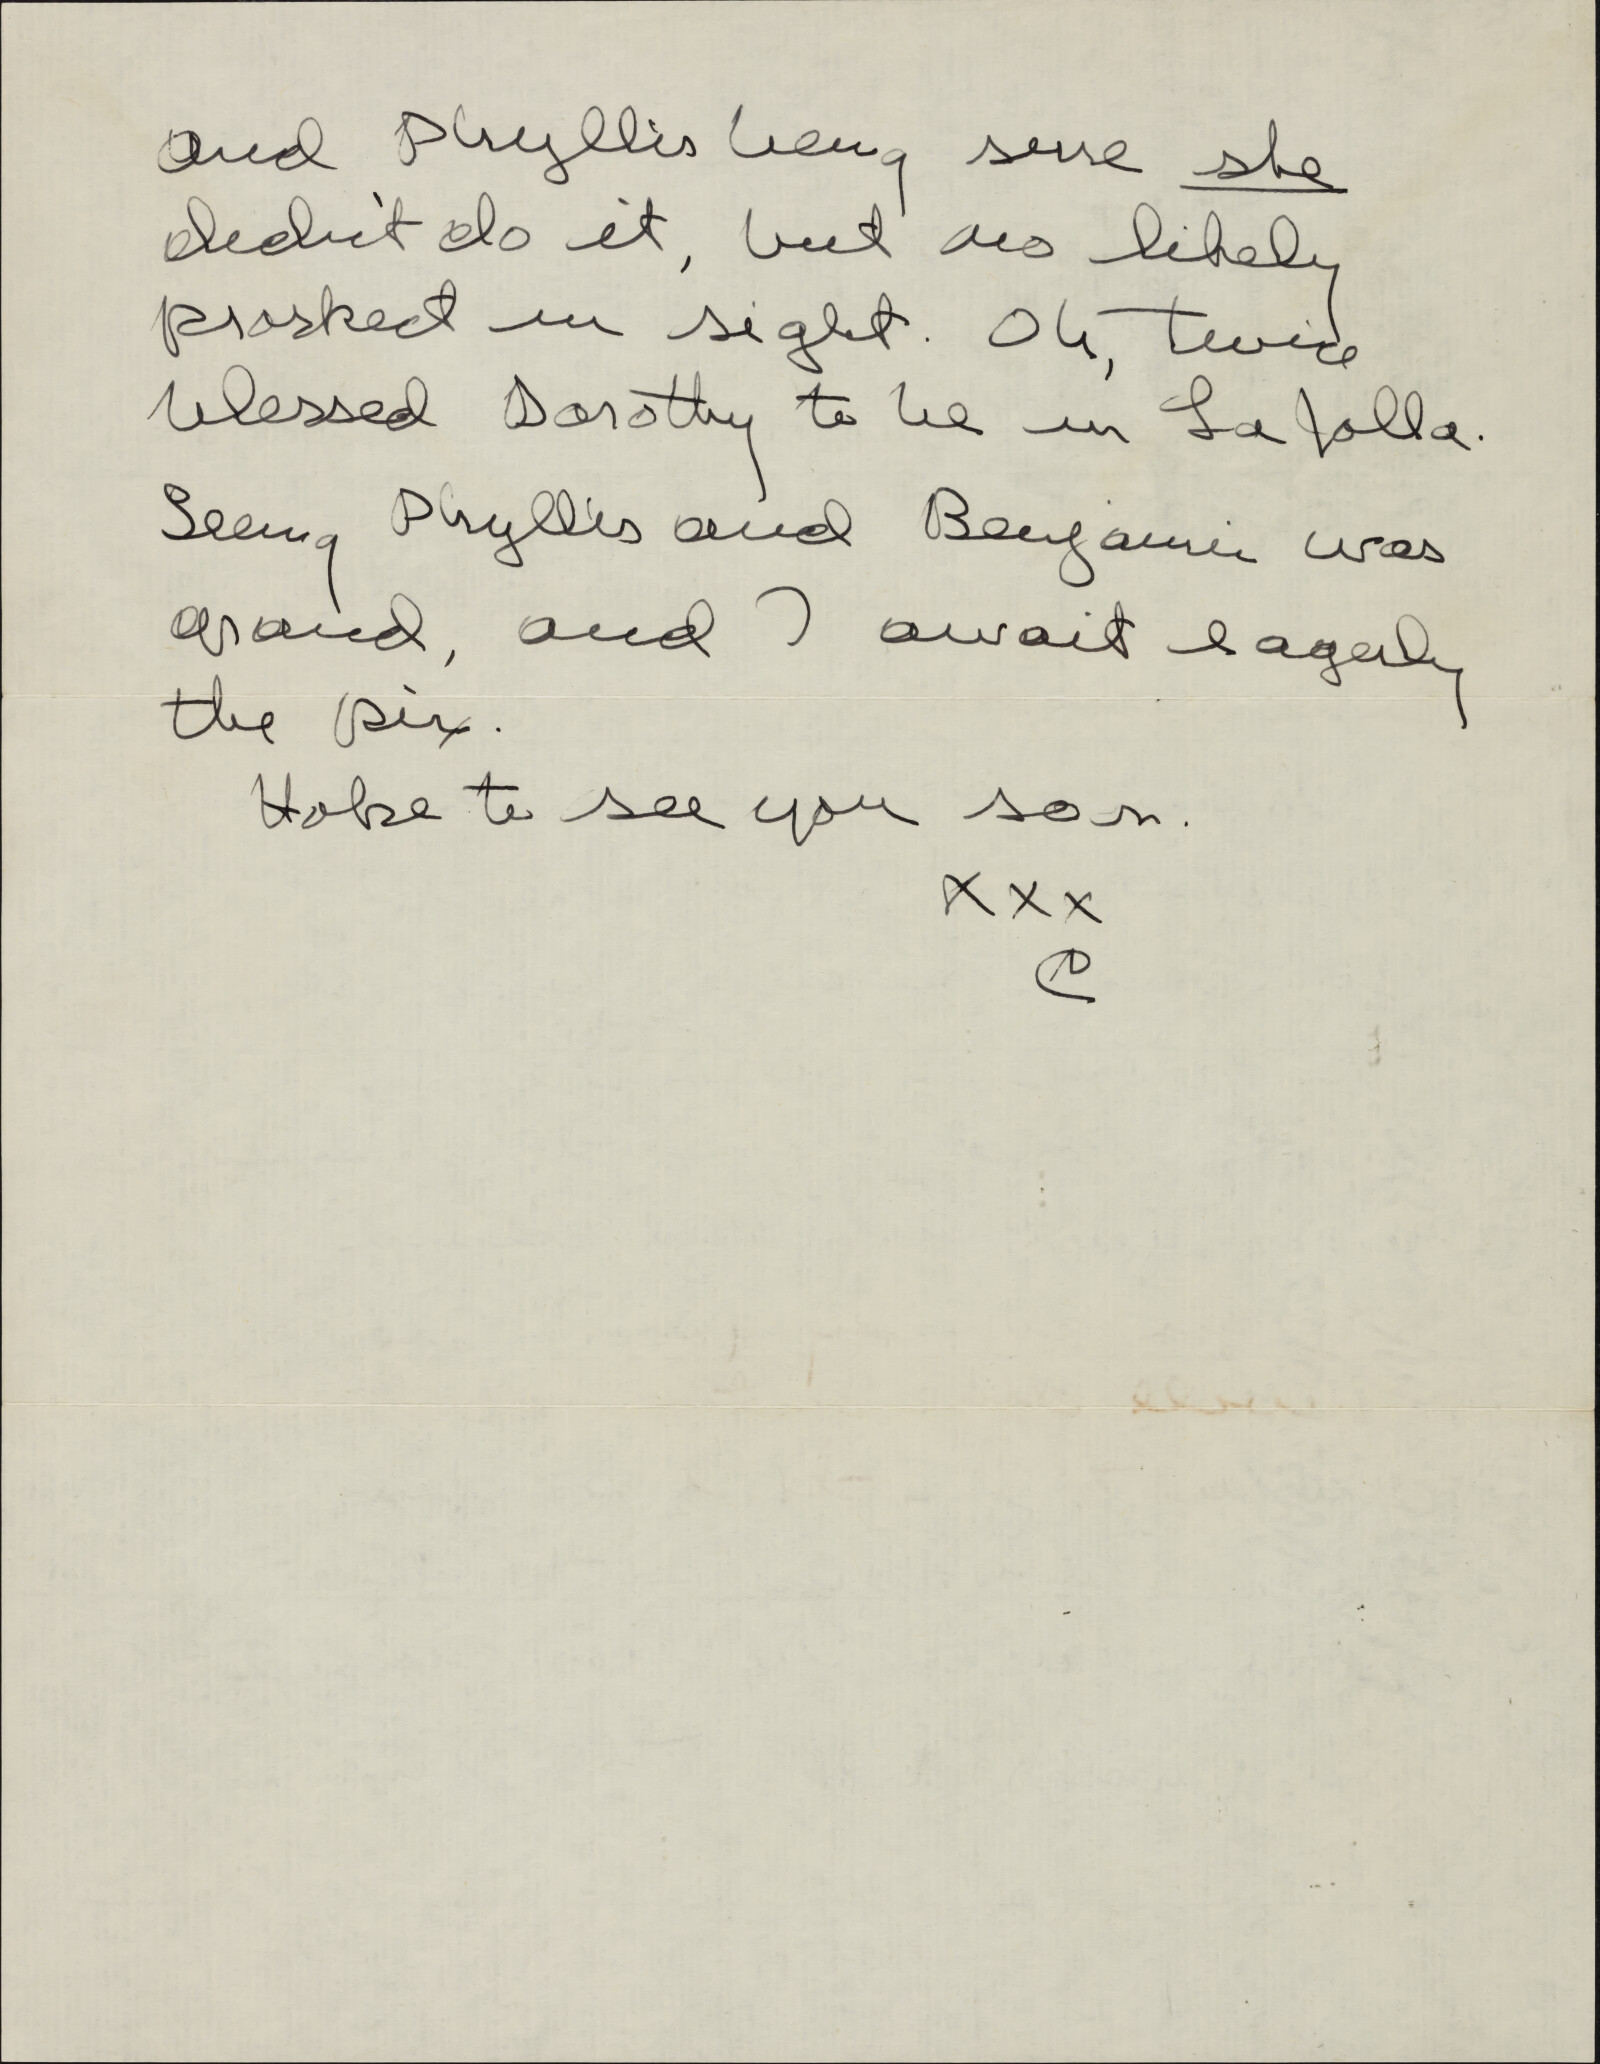 and Phyllis being sure she
didn't do it, but no likely
prospect in sight. Oh, twice
blessed Dorothy to be in La Jolla.
Seeing Phyllis and Benjamin was
grand, and I await eagerly
the pix.
Hope to see you soon.
xxx
C